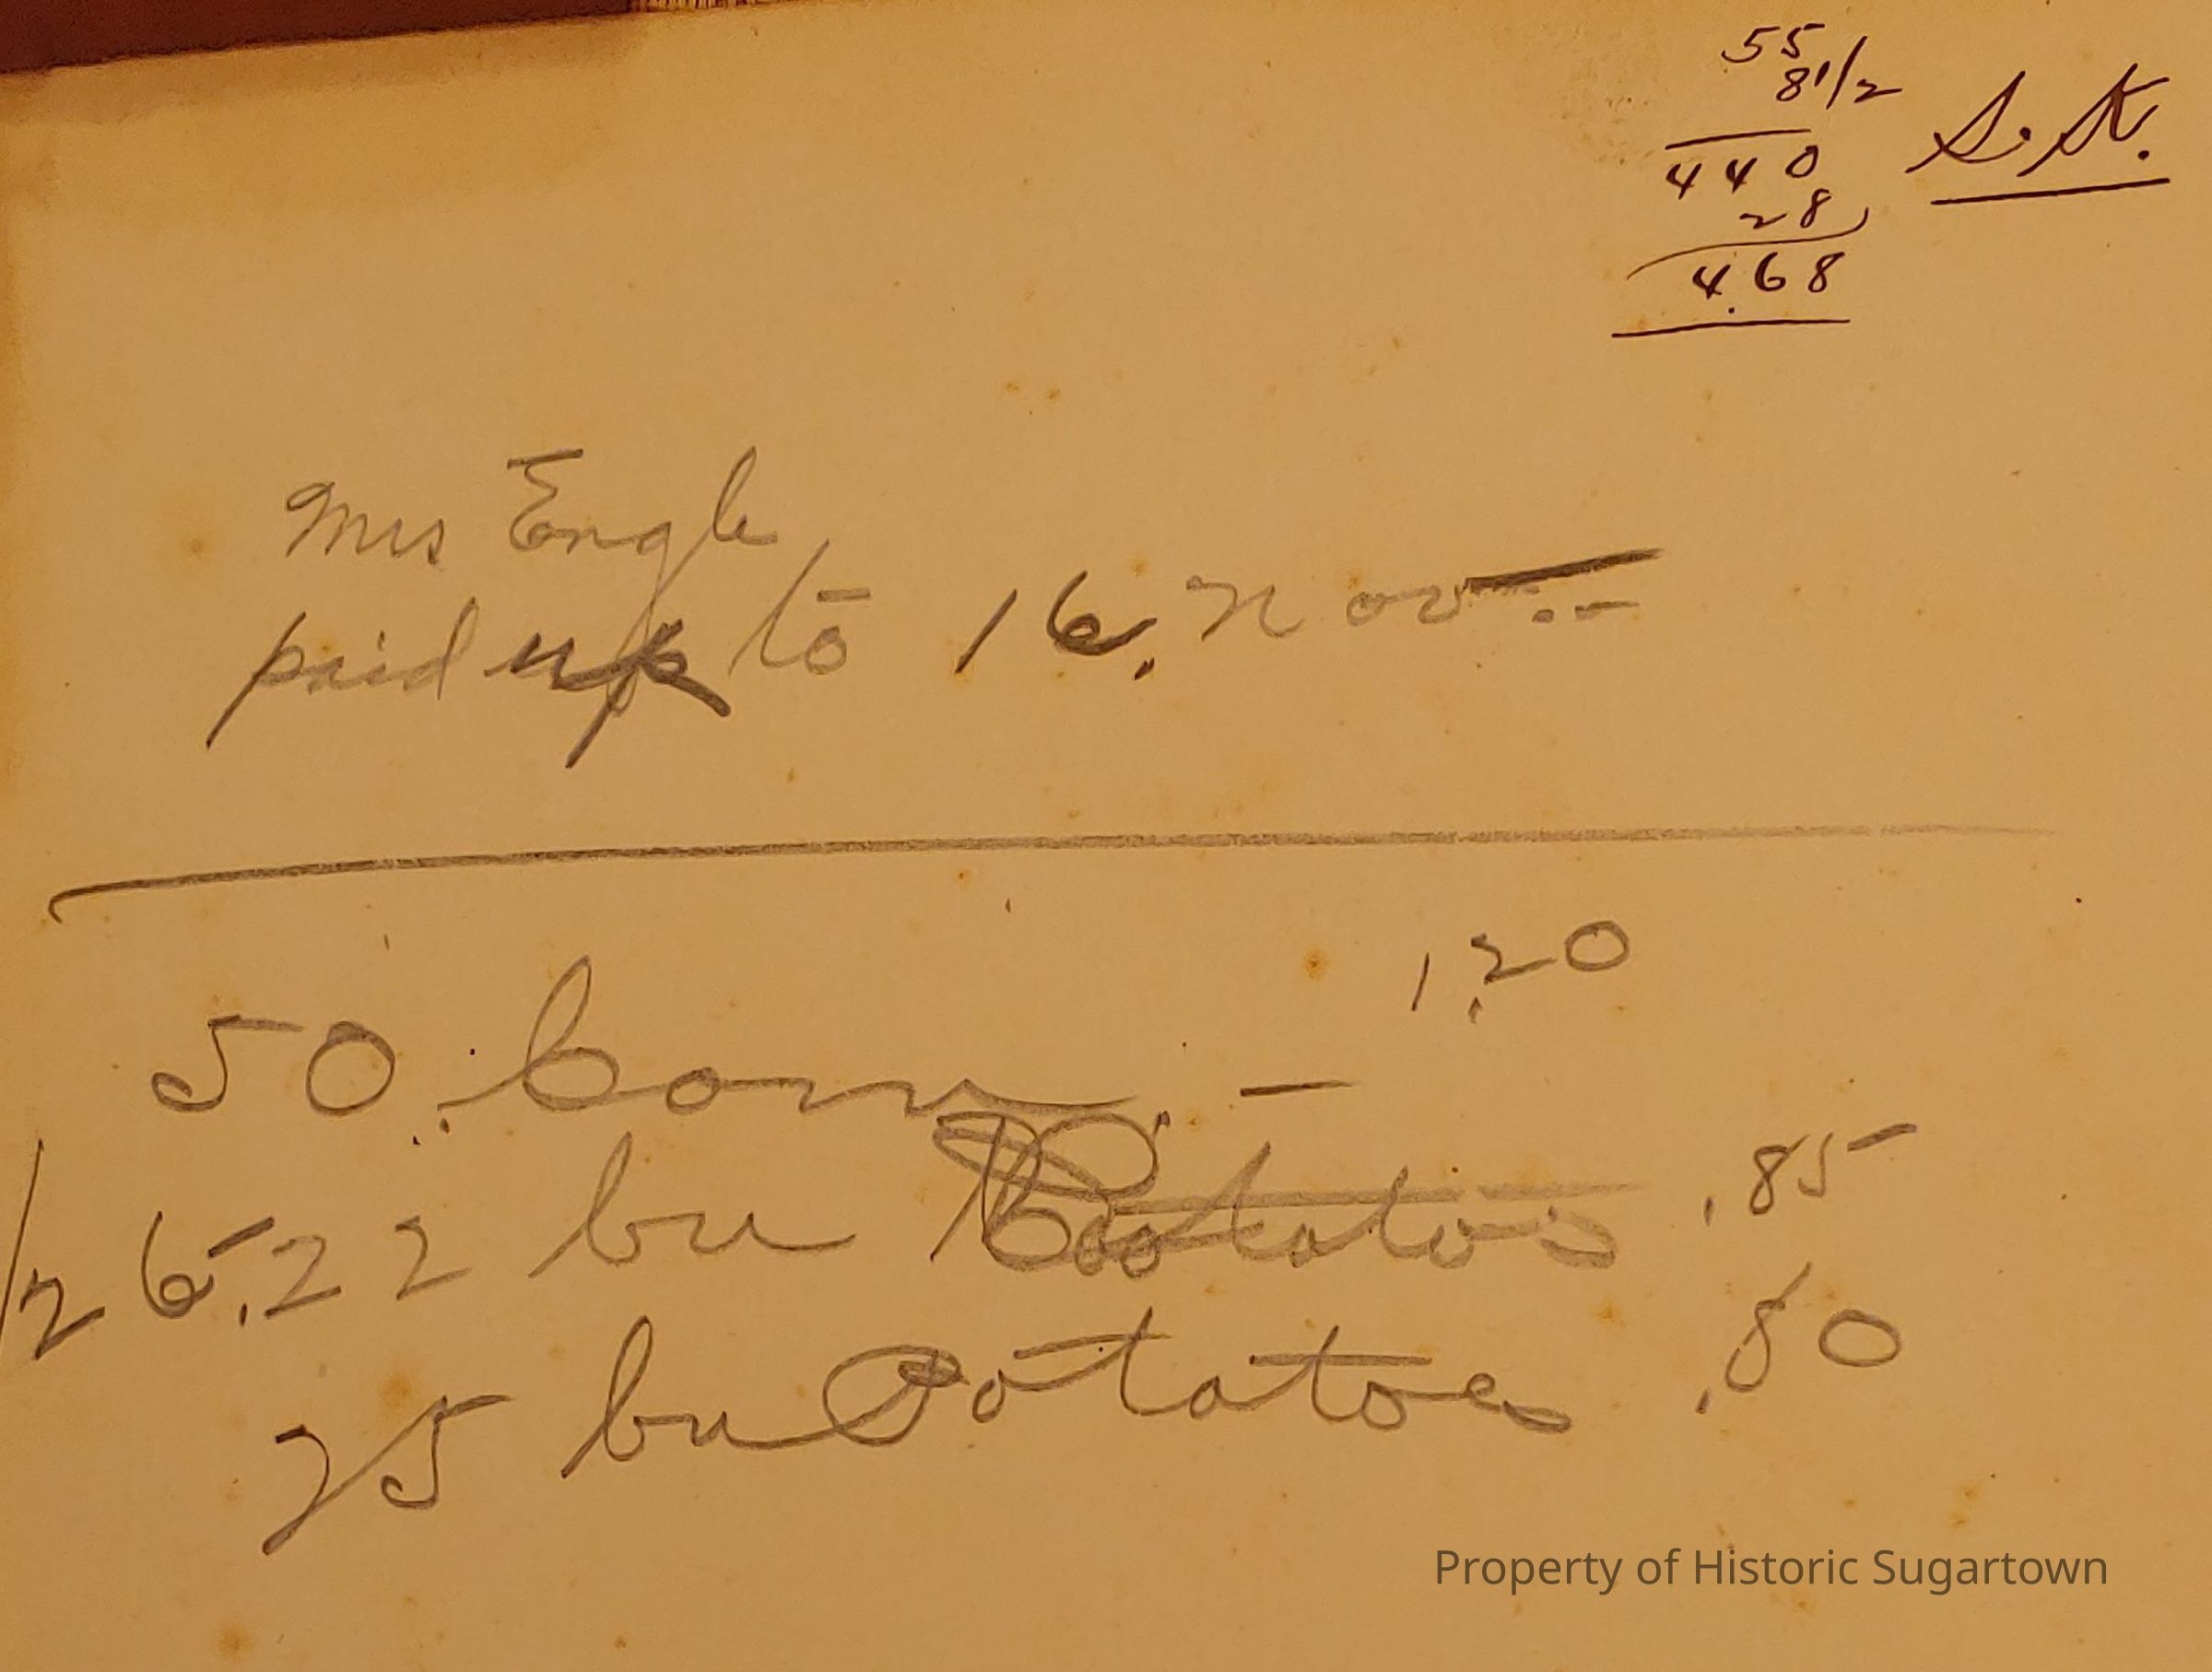 55
8 1/2
440
28
4.68
S. K.
Mrs Engle
paid up to 16. Nov. -
1.20
50 Corn. -
26.22 bu Potatos .85
25 bu Potatoes .80
Property of Historic Sugartown